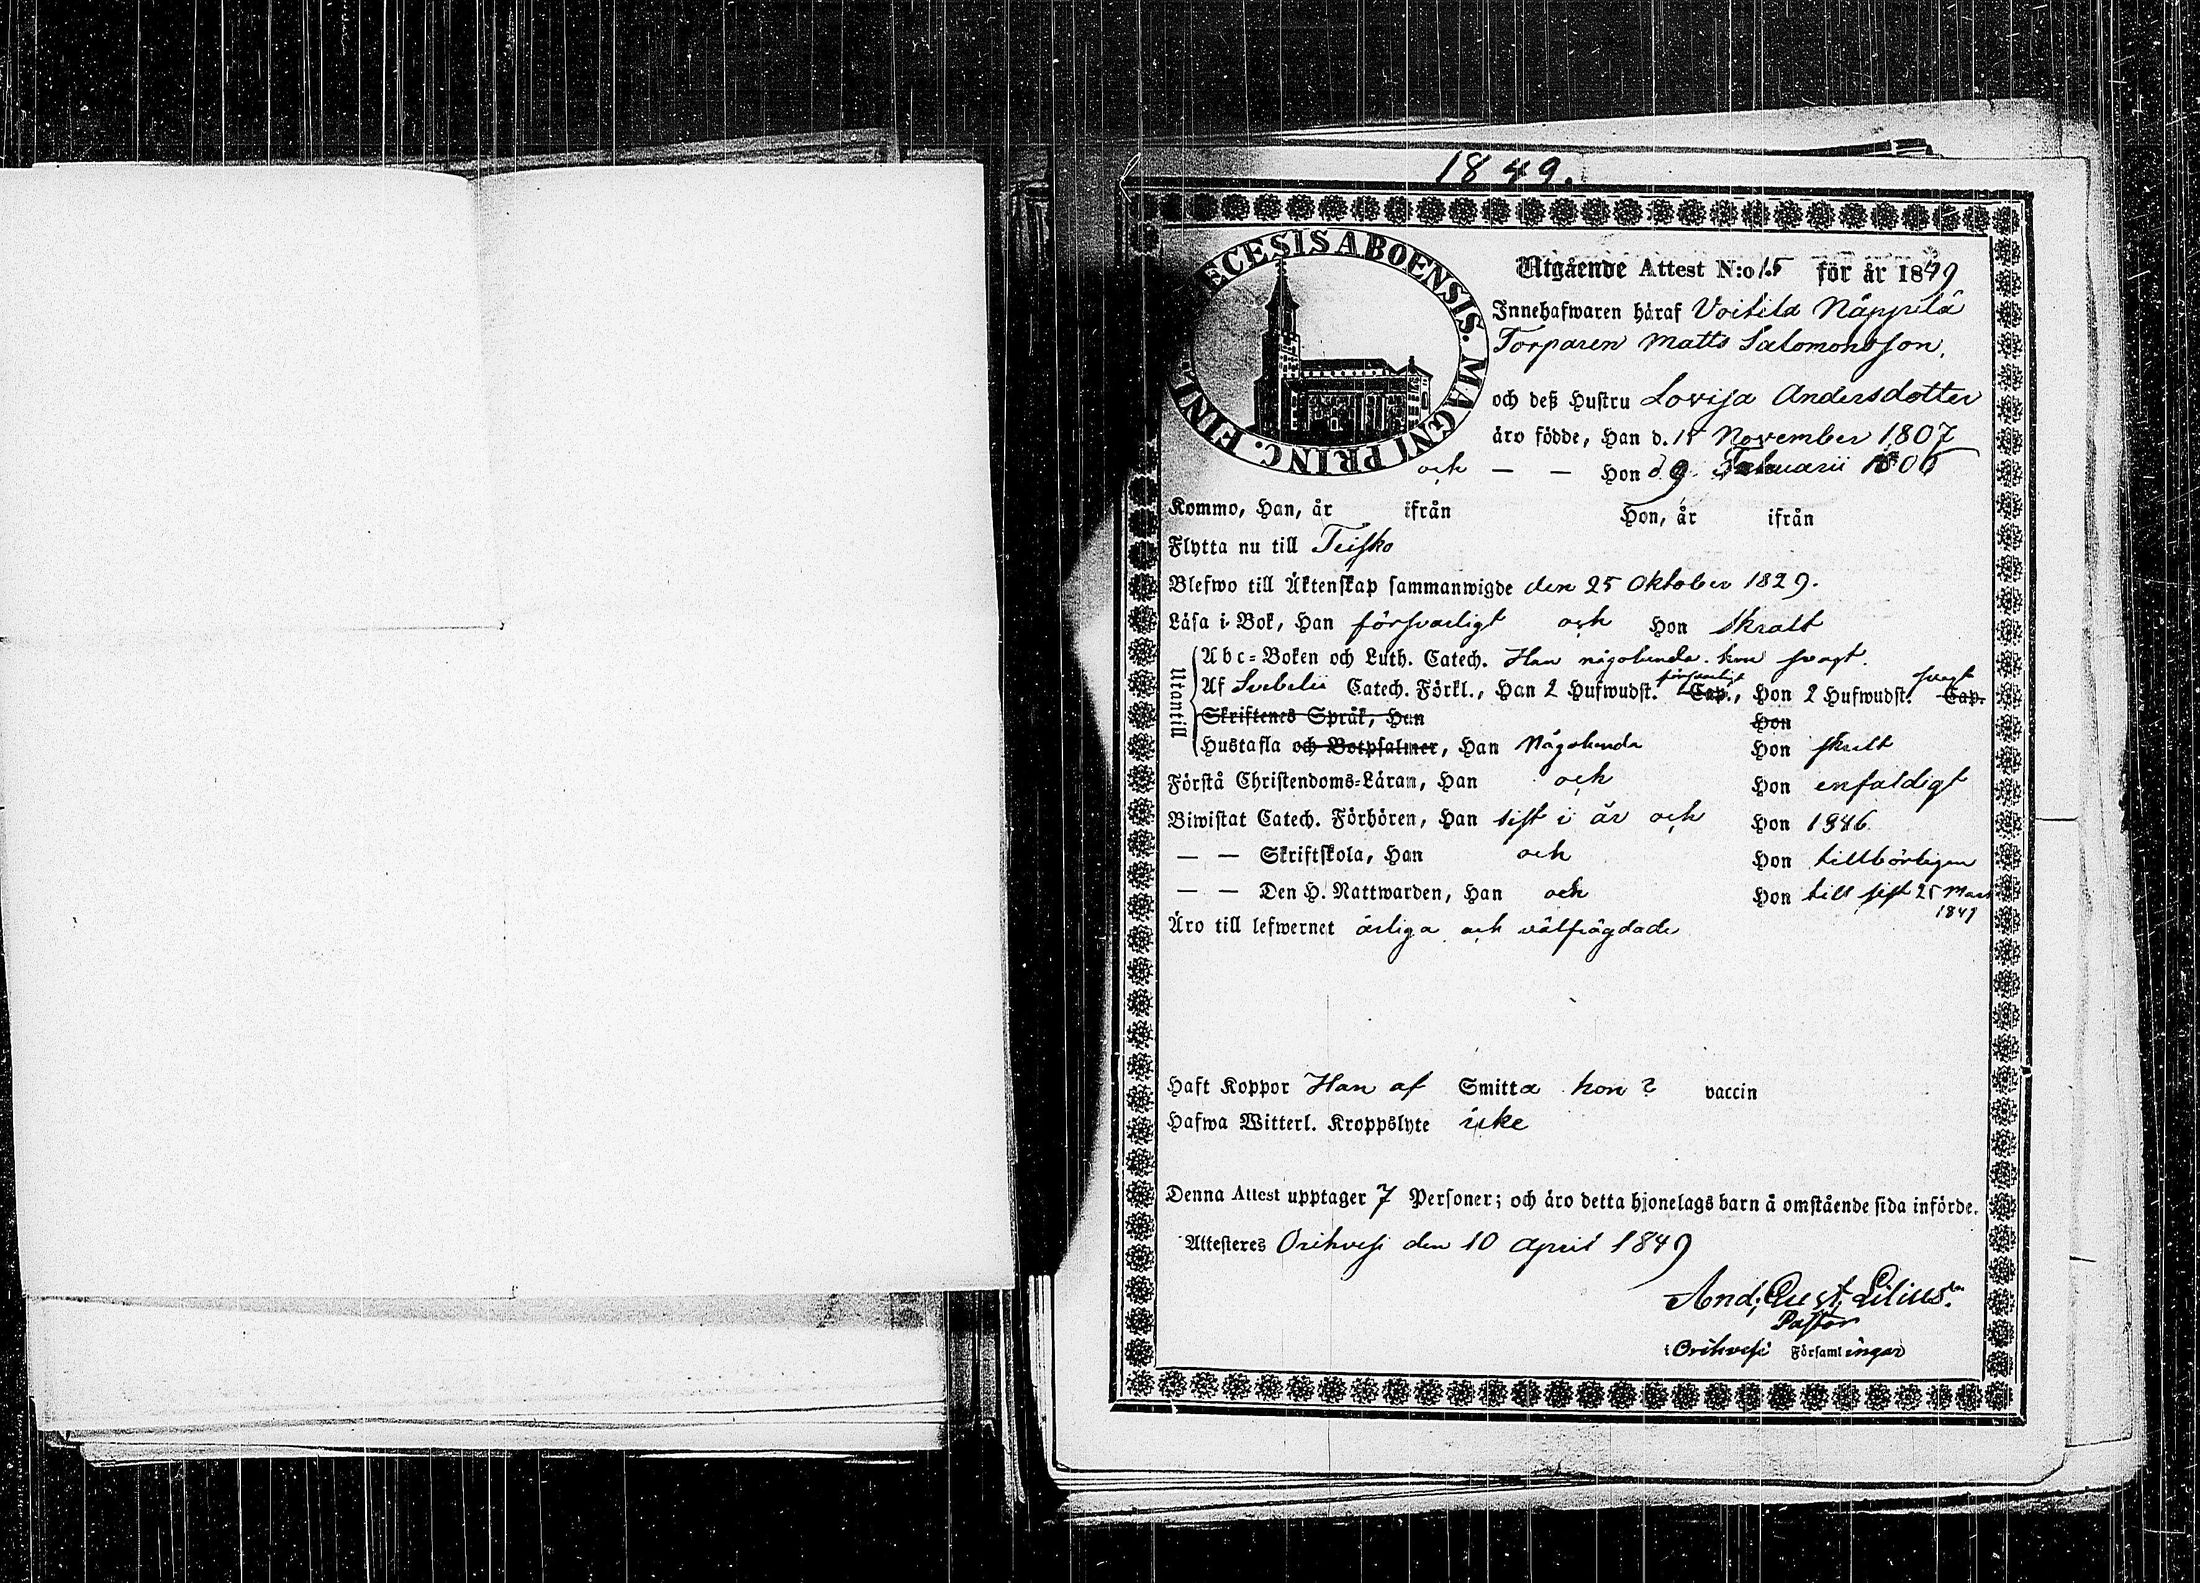 1849.
ECESIS ABOENSIS. MAGNI PRINC. FINL.
Utgående Attest N:o 15 för år 1849
Innehafwaren häraf Voitila Näppilä
Torparen Matts Salomonsson,
och deß Hustru Lovisa Andersdotter
äro födde, Han d. 15 November 1807
och — — Hon d 9 Februarii 1806
Kommo, Han, år ifrån Hon, år ifrån
Flytta nu till Teisko
Blefwo till Äktenskap sammanwigde den 25 Oktober 1829.
Läsa i Bok, Han försvarligt och Hon skralt
Utantill
Abc-Boken och Luth. Catech. Han någolunda. hon svagt.
Af Svebelii Catech. Förkl., Han 2 Hufwudst. försvarligt Cap., Hon 2 Hufwudst. svagt Cap.
Skriftenes Språk, Han Hon
Hustafla och Botpsalmer, Han Någolunda Hon skralt
Förstå Christendoms-Läran, Han och Hon enfaldigt
Biwistat Catech. Förhören, Han sist i år och Hon 1846
— — Skriftskola, Han och Hon tillbörligen
— — Den H. Nattwarden, Han och Hon till sist 25 Mars
1849
Äro till lefwernet ärliga och välfrägdade
Haft Koppor Han af Smitta hon ? vaccin
Hafwa Witterl. Kroppslyte icke
Denna Attest upptager 7 Personer; och äro detta hjonelags barn å omstående sida införde.
Attesteres Orihvesi den 10 April 1849
And. Gust. Lilius.
Pastor
i Orihvesi Församlingar